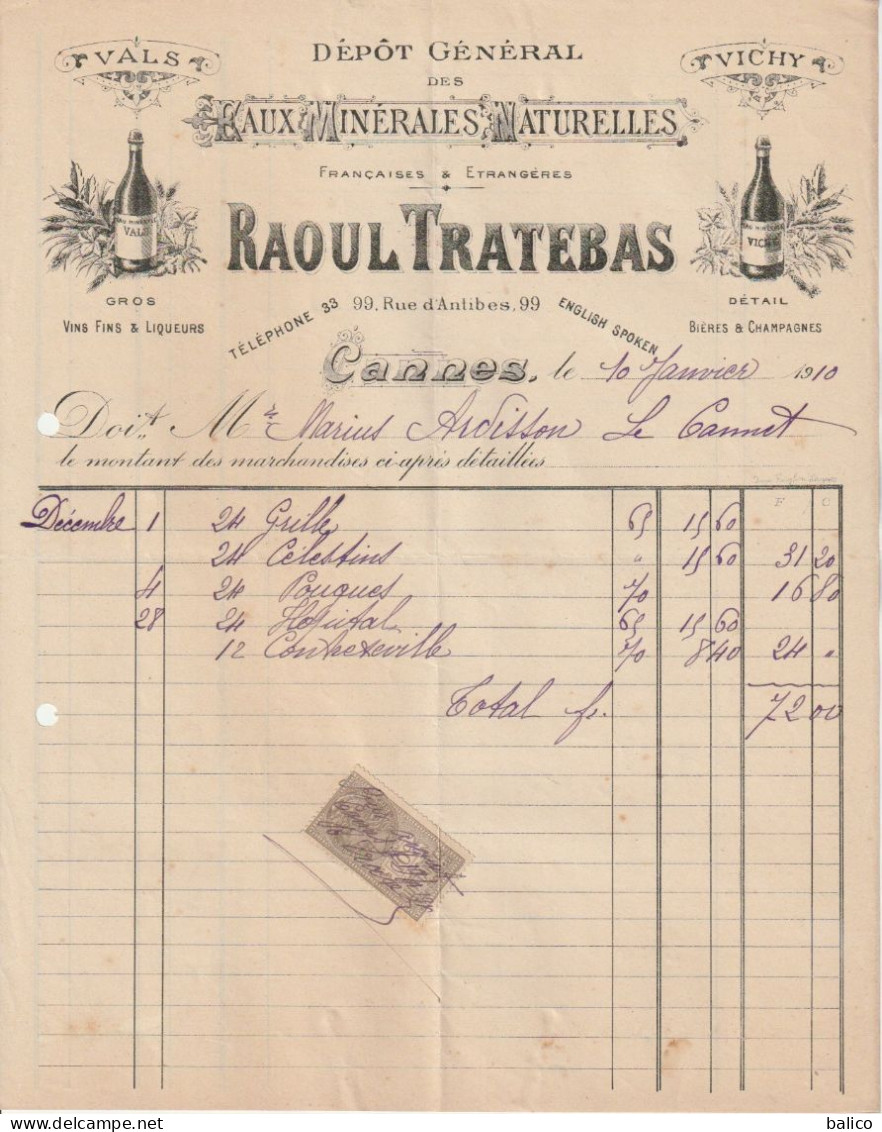 VALS
DÉPÔT GÉNÉRAL
VICHY
DES
EAUX MINÉRALES NATURELLES
FRANÇAISES & ETRANGÈRES
VALS
VICHY
RAOUL TRATEBAS
GROS
DÉTAIL
VINS FINS & LIQUEURS
TÉLÉPHONE 33
99, Rue d'Antibes, 99
ENGLISH SPOKEN
BIÈRES & CHAMPAGNES
Cannes, le 10 Janvier 1910
Doit Mr Marius Ardisson Le Cannet
le montant des marchandises ci-après détaillées
F C
Décembre 1 24 Grille 65 15 60
24 Célestins " 15 60 31 20
4 24 Pougues 70 16 80
28 24 Hopital 65 15 60
12 Contrexeville 70 8 40 24 "
Total fr. 72 00
delcampe.net
balico